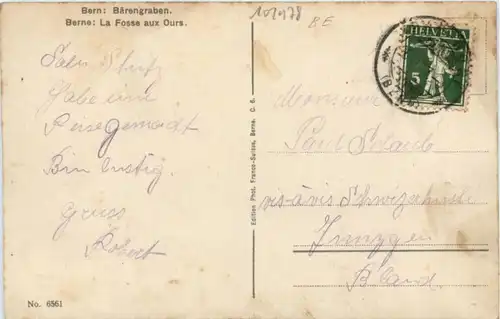 Bern: Bärengraben.
Berne: La Fosse aux Ours.
101978
BE
HELVETIA
5
Habe eine
Reise gemacht
Bin lustig.
Gruss
Robert
Edition Phot. Franco-Suisse, Berne. C. E.
Monsieur
Paul
vis-à-vis
Bland.
No. 6561